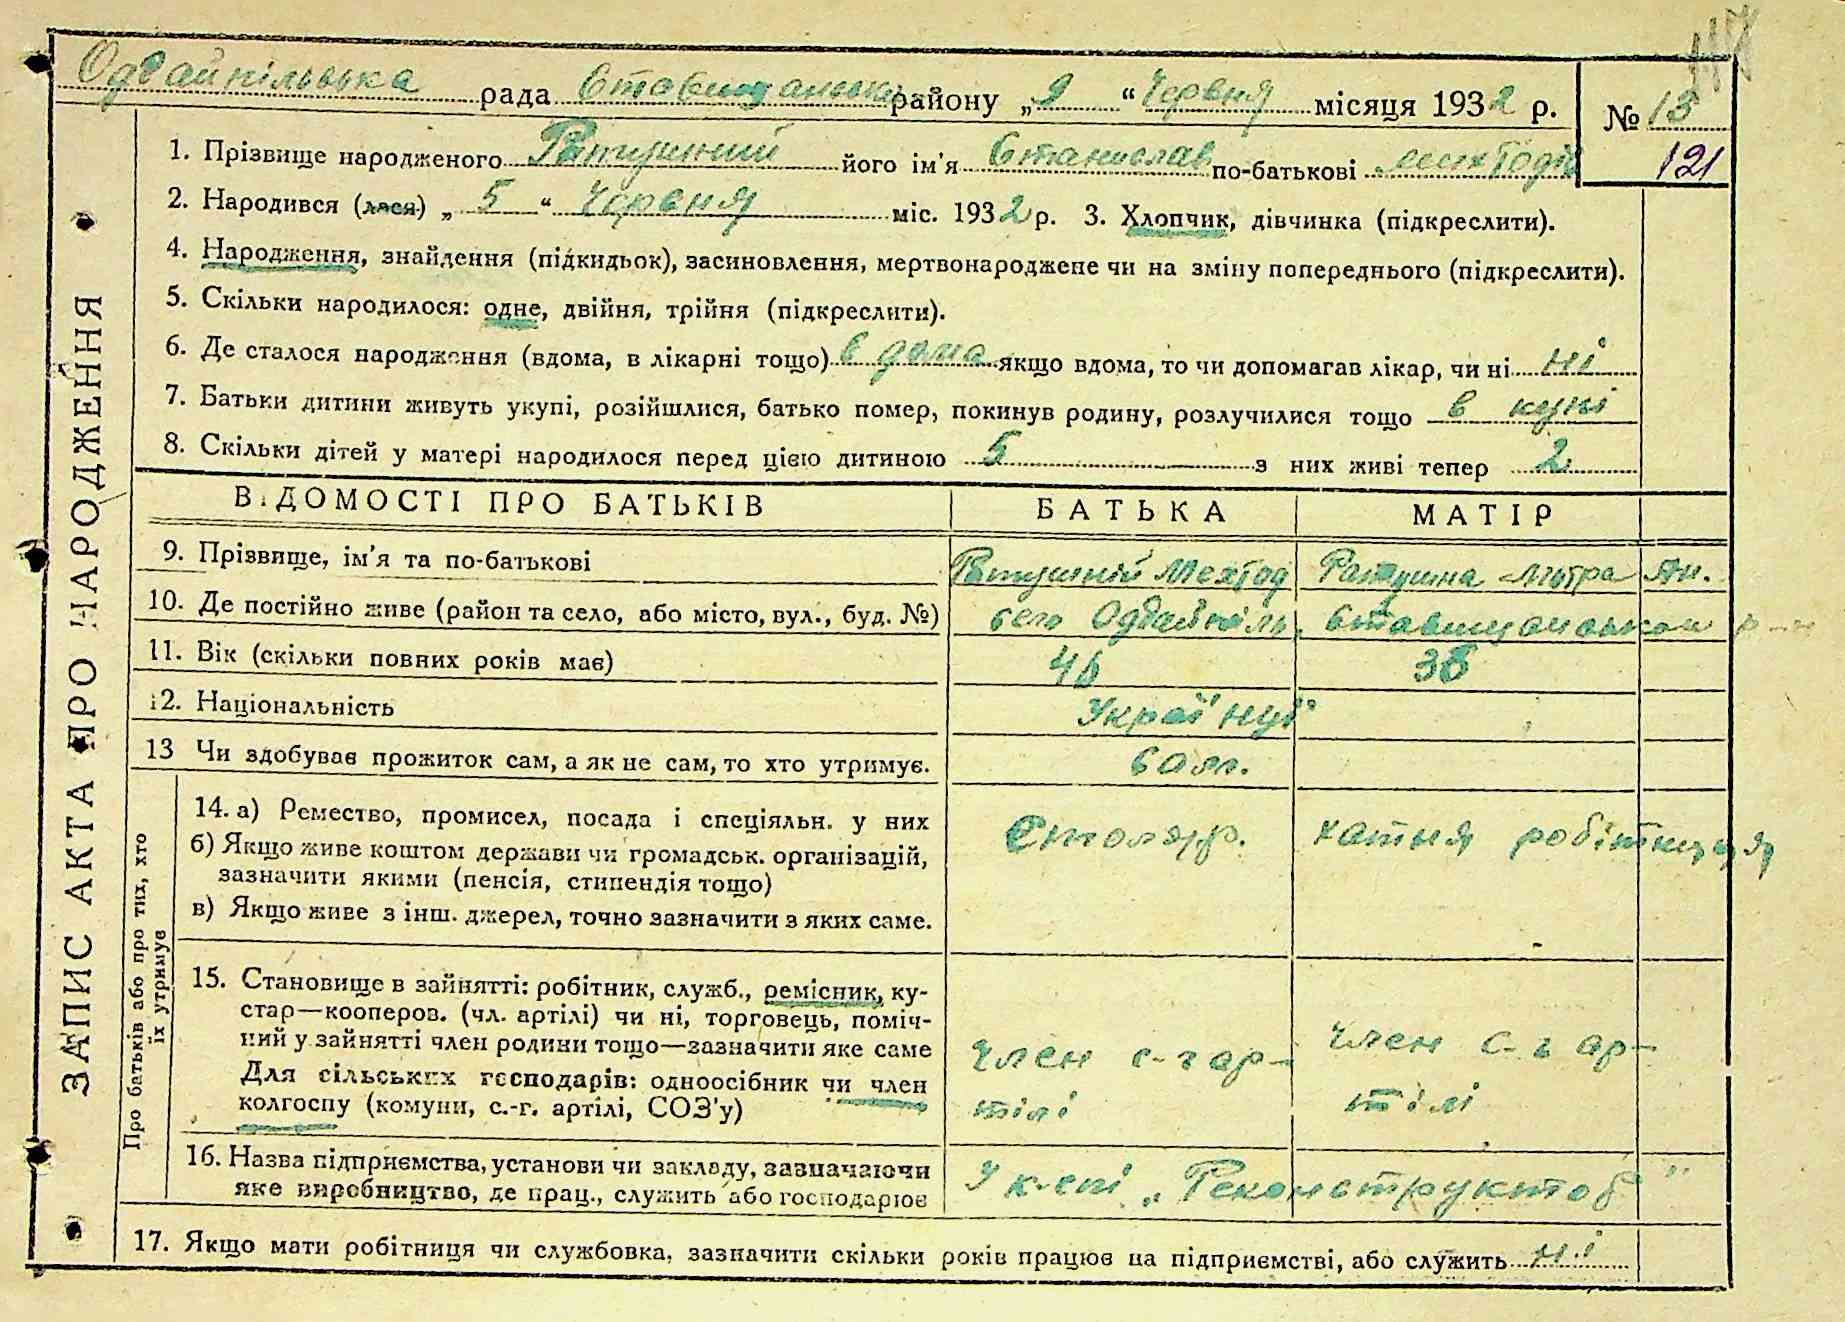 117
Одбайпільська рада Ставищанськ. району „9“ Червня місяця 1932 р. № 13
121
1. Прізвище народженого Ратушний його ім'я Станислав по-батькові мехтодів
2. Народився (лася) „5“ Червня міс. 1932 р. 3. Хлопчик, дівчинка (підкреслити).
4. Народження, знайдення (підкидьок), засиновлення, мертвонароджене чи на зміну попереднього (підкреслити).
5. Скільки народилося: одне, двійня, трійня (підкреслити).
6. Де сталося народження (вдома, в лікарні тощо) в дома якщо вдома, то чи допомагав лікар, чи ні ні
7. Батьки дитини живуть укупі, розійшлися, батько помер, покинув родину, розлучилися тощо в купі
8. Скільки дітей у матері народилося перед цією дитиною 5 з них живі тепер 2
ВІДОМОСТІ ПРО БАТЬКІВ БАТЬКА МАТІР
9. Прізвище, ім'я та по-батькові Ратушній Мехтод Ратушна Ан.
10. Де постійно живе (район та село, або місто, вул., буд. №) село Одбайпіль. Ставищанськои р-н
11. Вік (скільки повних років має) 38
12. Національність Україʼнці
13 Чи здобуває прожиток сам, а як не сам, то хто утримує. сам.
14. а) Ремество, промисел, посада і спеціяльн. у них Столяр. хатня робітниця
б) Якщо живе коштом держави чи громадськ. організацій,
зазначити якими (пенсія, стипендія тощо)
в) Якщо живе з інш. джерел, точно зазначити з яких саме.
15. Становище в зайнятті: робітник, служб., ремісник, ку-
стар—кооперов. (чл. артілі) чи ні, торговець, поміч-
ний у зайнятті член родини тощо—зазначити яке саме
Для сільських господарів: одноосібник чи член
колгоспу (комуни, с.-г. артілі, СОЗ'у)
член с-г ар-
тілі
член с-г ар-
тілі
16. Назва підприємства, установи чи закладу, зазначаючи
яке виробництво, де прац., служить або господарює
У к-спі „Реконструктор"
17. Якщо мати робітниця чи службовка, зазначити скільки років працює на підприємстві, або служить ні
ЗАПИС АКТА ПРО НАРОДЖЕННЯ
Про батьків або про тих, хто
їх утримує